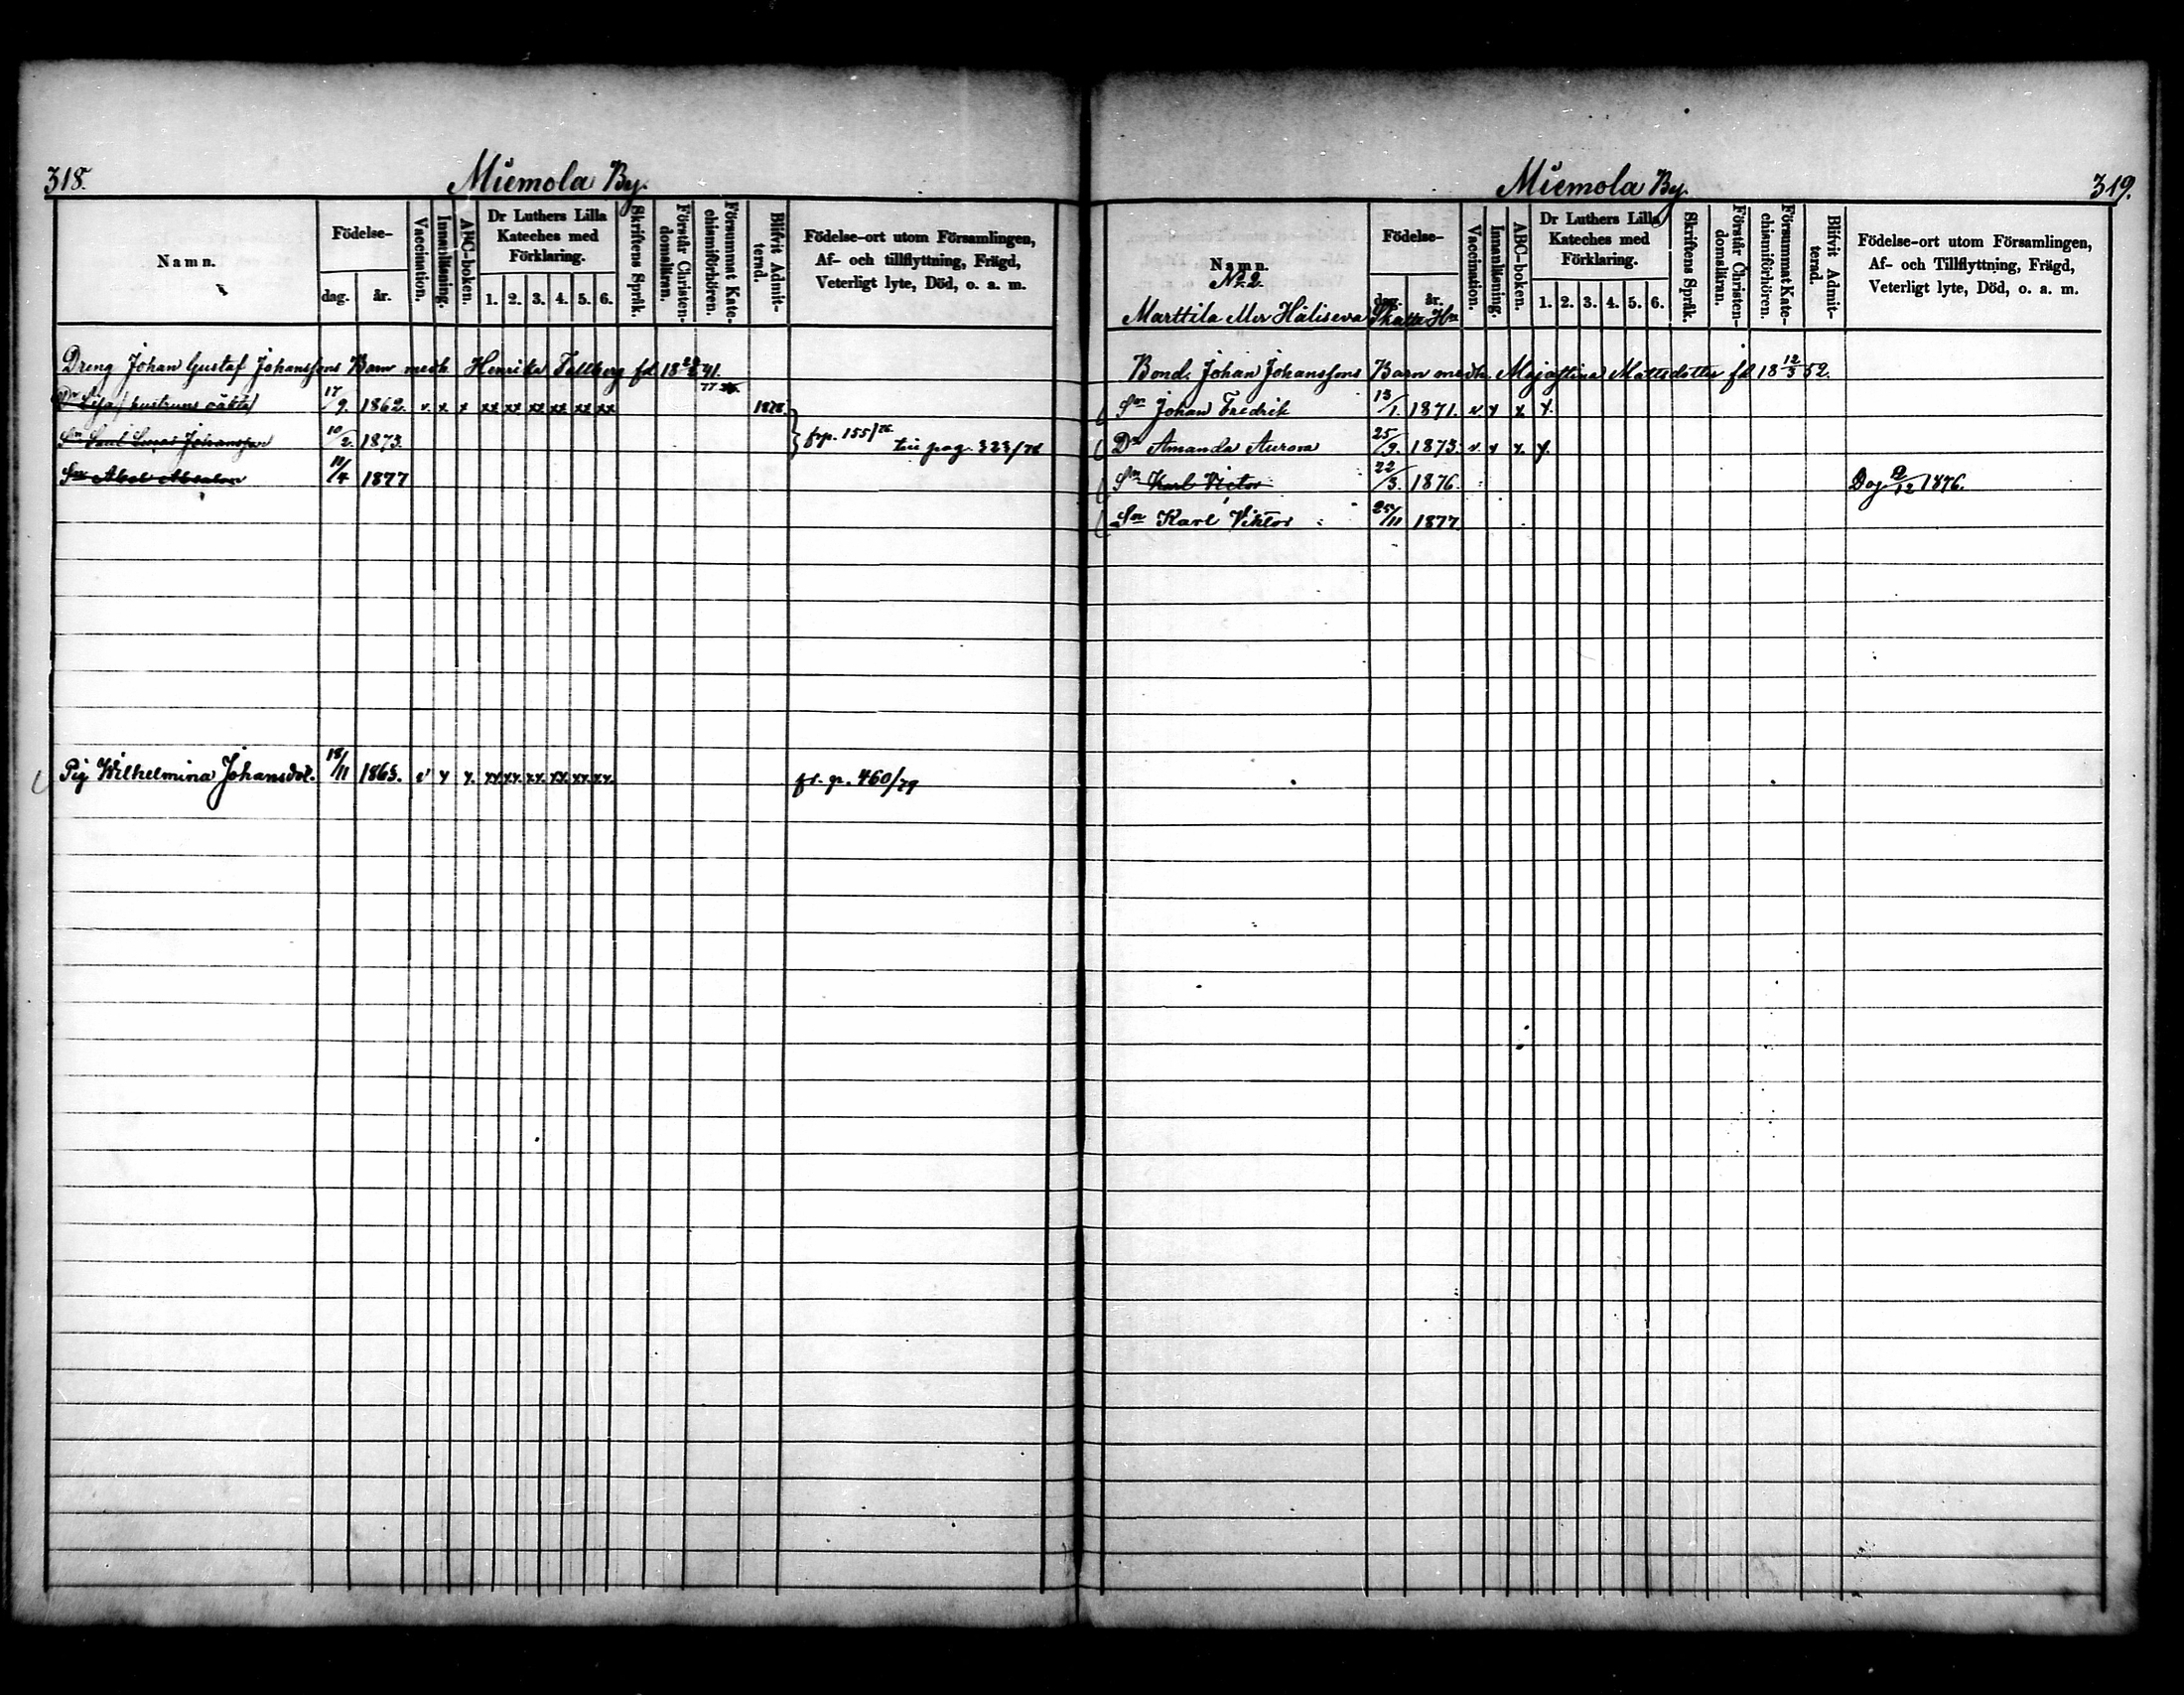 318.
Miemola By.
Namn.
Födelse-
dag.
år.
Vaccination.
Innanläsning.
ABC-boken.
Dr Luthers Lilla
Kateches med
Förklaring.
1. 2. 3. 4. 5. 6.
Skriftens Språk.
Förstår Christen-
domsläran.
Försummat Kate-
chismiförhören.
Blifvit Admit-
terad.
Födelse-ort utom Församlingen,
Af- och tillflyttning, Frägd,
Veterligt lyte, Död, o. a. m.
Dreng Johan Gustaf Johanssons Barn medh. Henrika Tallberg fd. 18 41.
77
Dr Lisa (hustruns oäkta) 17/9. 1862. v. x. x xx xx xx xx xx xx 1878.
Sn Johansson 10/2. 1873. frp. 155/76 till pag. 323/78
Sn Abel Absalon /4 1877
Pig Wilhelmina Johansdot. 18/11 1863. v y y. xx. xx. xx. xx. xx. xx. fr. p. 460/79
319.
Miemola By.
Namn.
No 2.
Marttila Skatte Hn
Födelse-
dag.
år.
Vaccination.
Innanläsning.
ABC-boken.
Dr Luthers Lilla
Kateches med
Förklaring.
1. 2. 3. 4. 5. 6.
Skriftens Språk.
Förstår Christen-
domsläran.
Försummat Kate-
chismiförhören.
Blifvit Admit-
terad.
Födelse-ort utom Församlingen,
Af- och Tillflyttning, Frägd,
Veterligt lyte, Död, o. a. m.
Bond. Johan Johanssons Barn medh. Majastina Mattsdotter fd 18 12/3 52.
Sn Johan Fredrik 13/1. 1871. v y y. y.
Dr Amanda Aurora 25/9. 1873. v. y y. y.
Sn Karl Victor 22/3. 1876. Dog /12 1876.
Sn Karl Viktor 25/11 1877